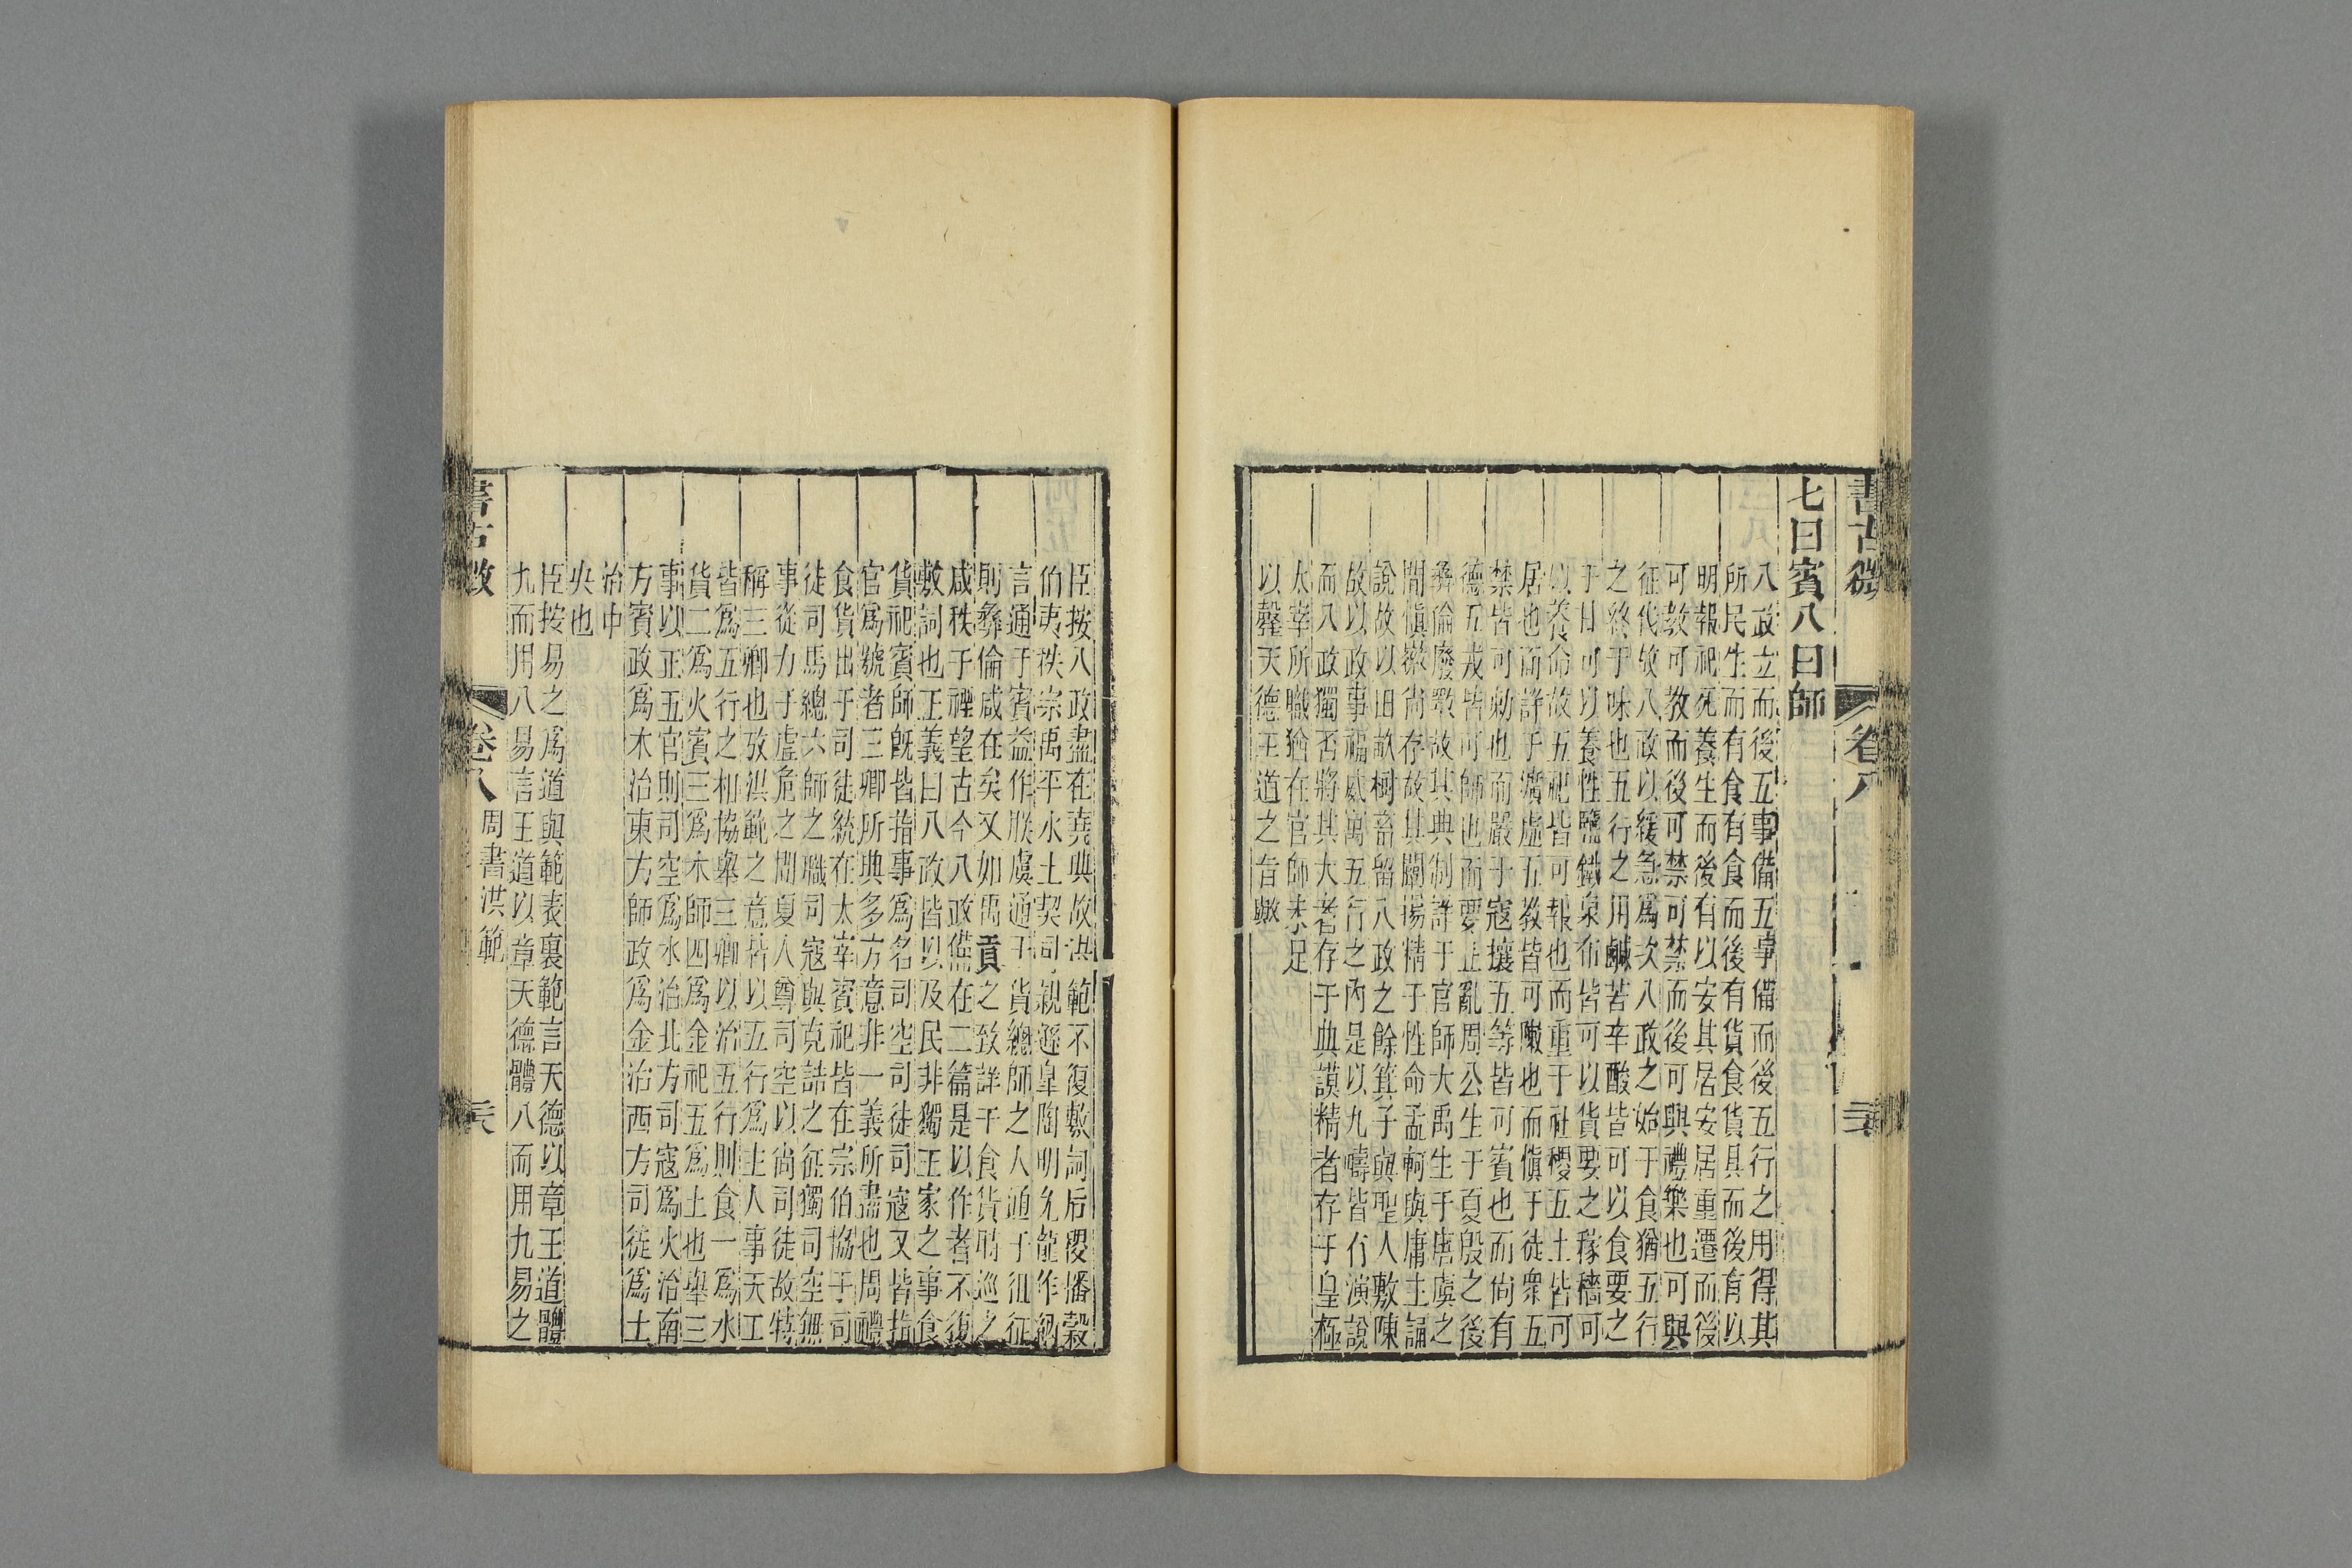 書古微
卷八
七曰賓八曰師
八政立而後五事備五事備而後五行之用得其
所民生而有食有食而後有貨食貨具而後有以
明報祀死養生而後有以安其居安居重遷而後
可敎可教而後可禁可禁而後可興禮樂也可與
征伐故八政以緩急爲次八政之始于食猶五行
之終于味也五行之用鹹苦辛酸皆可以食要之
于甘可以養性鹽鐵泉布皆可以貨要之稼穡可
以養命故五祀皆可報也而重于社稷五土皆可
居也而詳于壙虛五教皆可敶也而愼于徒衆五
禁皆可勅也而嚴于寇攘五等皆可賓也而尙有
德五戎皆可師也而要止亂周公生于夏殷之後
彝倫廢斁故其典制詳于官師大禹生于唐虞之
閒愼徽尙存故其闡揚精于性命孟軻與庸主論
說故以田畝樹畜留八政之餘箕子與聖人敷陳
故以政事福威寓五行之內是以九疇皆有演說
而八政獨否將其大者存于典謨精者存于皇極
太宰所職猶在官師未足
以罄天德王道之旨歟
臣按八政盡在堯典故洪範不復敷詞后稷播穀
伯夷秩宗禹平水土契司親遜皐陶明允龍作納
言通于賓益作朕虞通于貨總師之人通于徂征
則彝倫咸在矣又如禹貢之致詳于食貨時巡之
咸秩于禋望古今八政備在二篇是以作者不復
敷詞也正義曰八政皆以及民非獨王家之事食
貨祀賓師旣皆指事爲名司空司徒司寇又皆指
官爲號者三卿所典多方意非一義所盡也周禮
食貨出于司徒統在太宰賓祀皆在宗伯協于司
徒司馬總六師之職司寇與克詰之征獨司空無
事從力于虛危之閒夏人尊司空以尙司徒故特
稱三卿也攷洪範之意皆以五行爲主人事天工
皆爲五行之相協舉三卿以治五行則食一爲水
貨二爲火賓三爲木師四爲金祀五爲土也舉三
事以正五官則司空爲水治北方司寇爲火治南
方賓政爲木治東方師政爲金治西方司徒爲土
治中
央也
臣按易之爲道與範表裏範言天德以章王道體
九而用八易言王道以章天德體八而用九易之
書古微
卷八
周書洪範